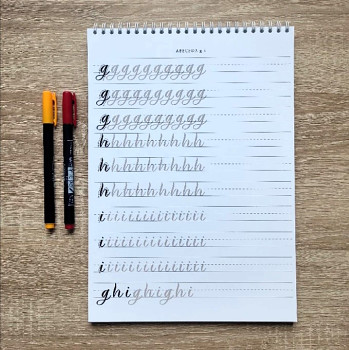 gggggggggg
gggggggggg
gggggggggg
hhhhhhhhh
hhhhhhhhh
hhhhhhhhh
iiiiiiiiiiiii
iiiiiiiiiiiii
iiiiiiiiiiiii
ghighighi